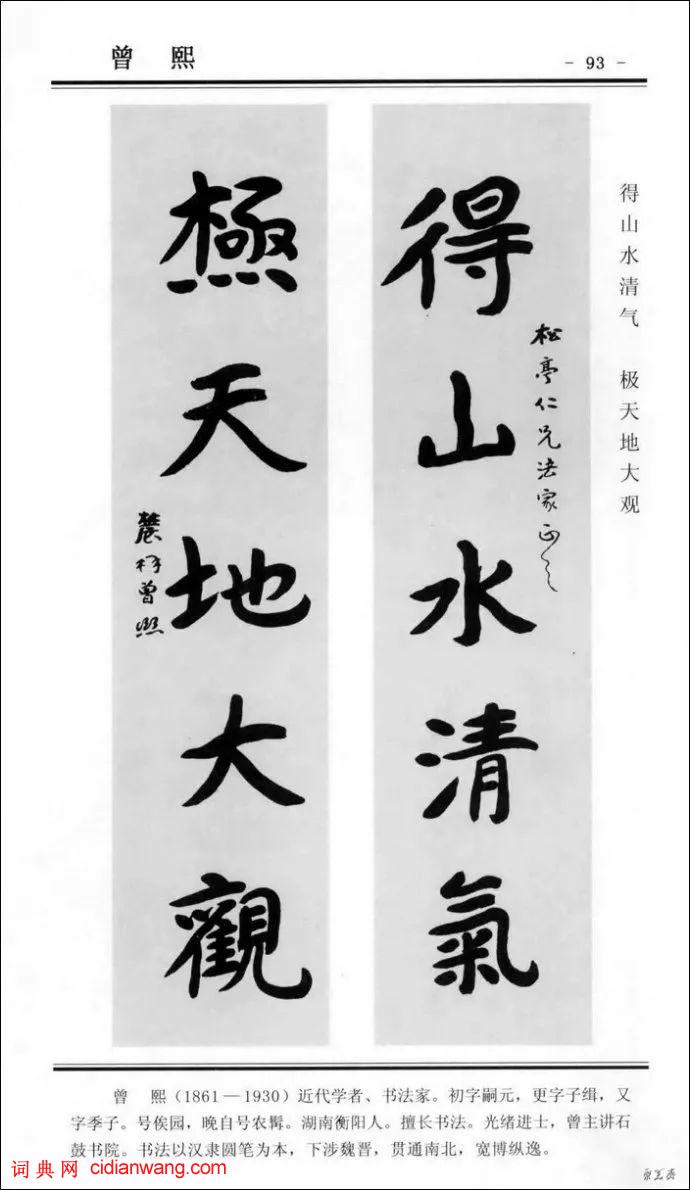 曾 熙
- 93 -
得山水清气 极天地大观
得山水清氣
松亭仁兄法家正之
極天地大觀
農髯曾熙
曾 熙（1861—1930）近代学者、书法家。初字嗣元，更字子缉，又
字季子。号俟园，晚自号农髯。湖南衡阳人。擅长书法。光绪进士，曾主讲石
鼓书院。书法以汉隶圆笔为本，下涉魏晋，贯通南北，宽博纵逸。
词典网 cidianwang.com